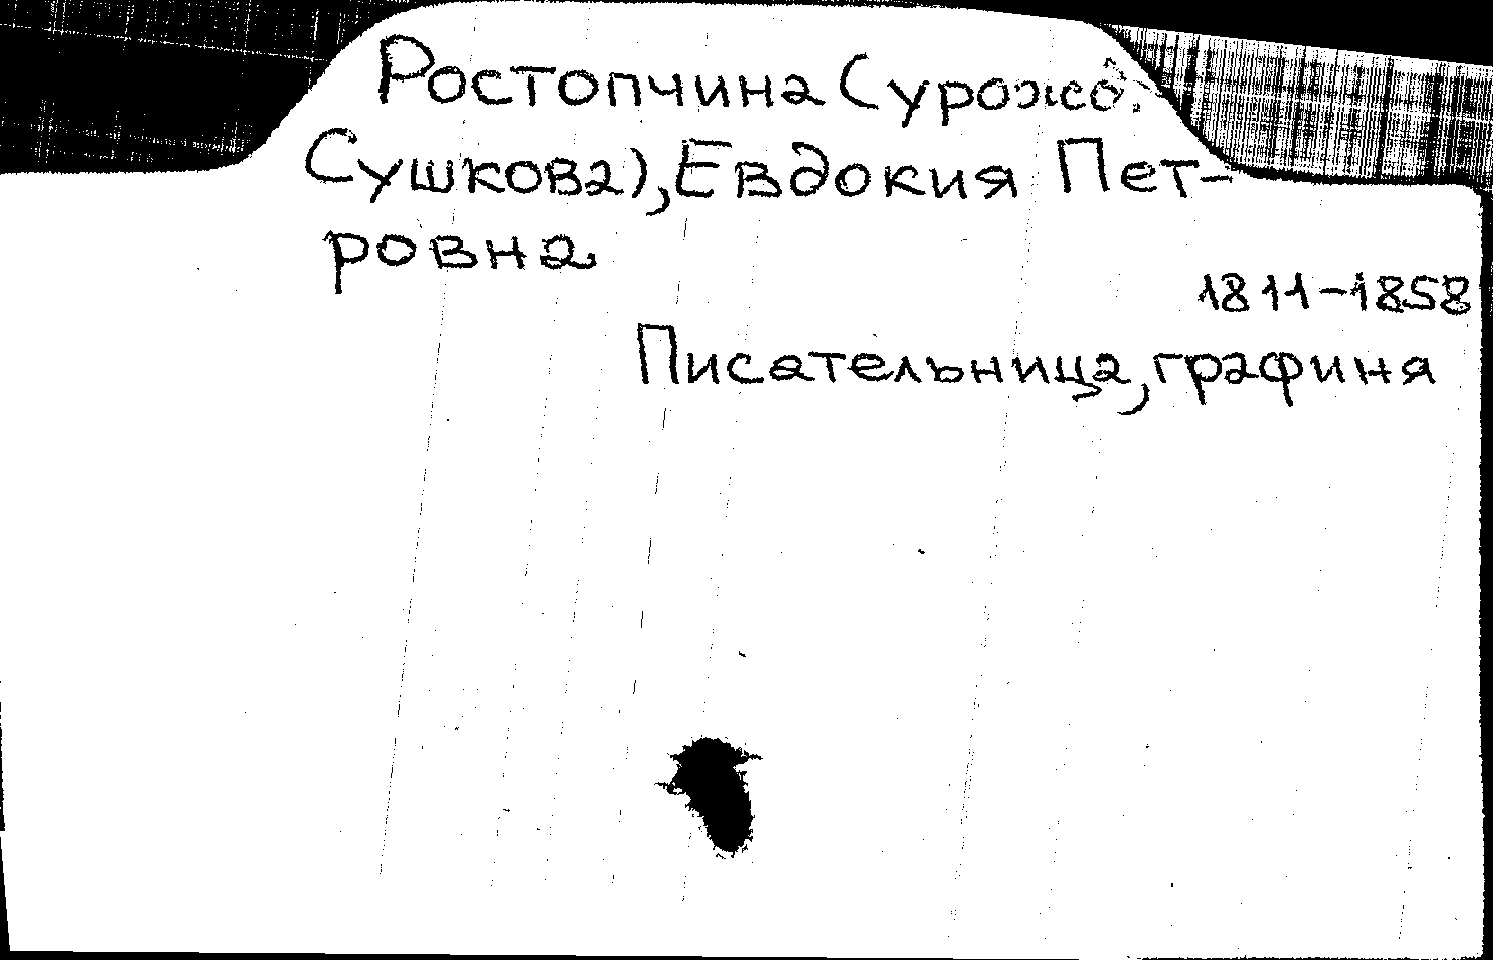 Ростопчина (урожд.
Сушкова), Евдокия Пет-
ровна
1811-1858
Писательница, графиня